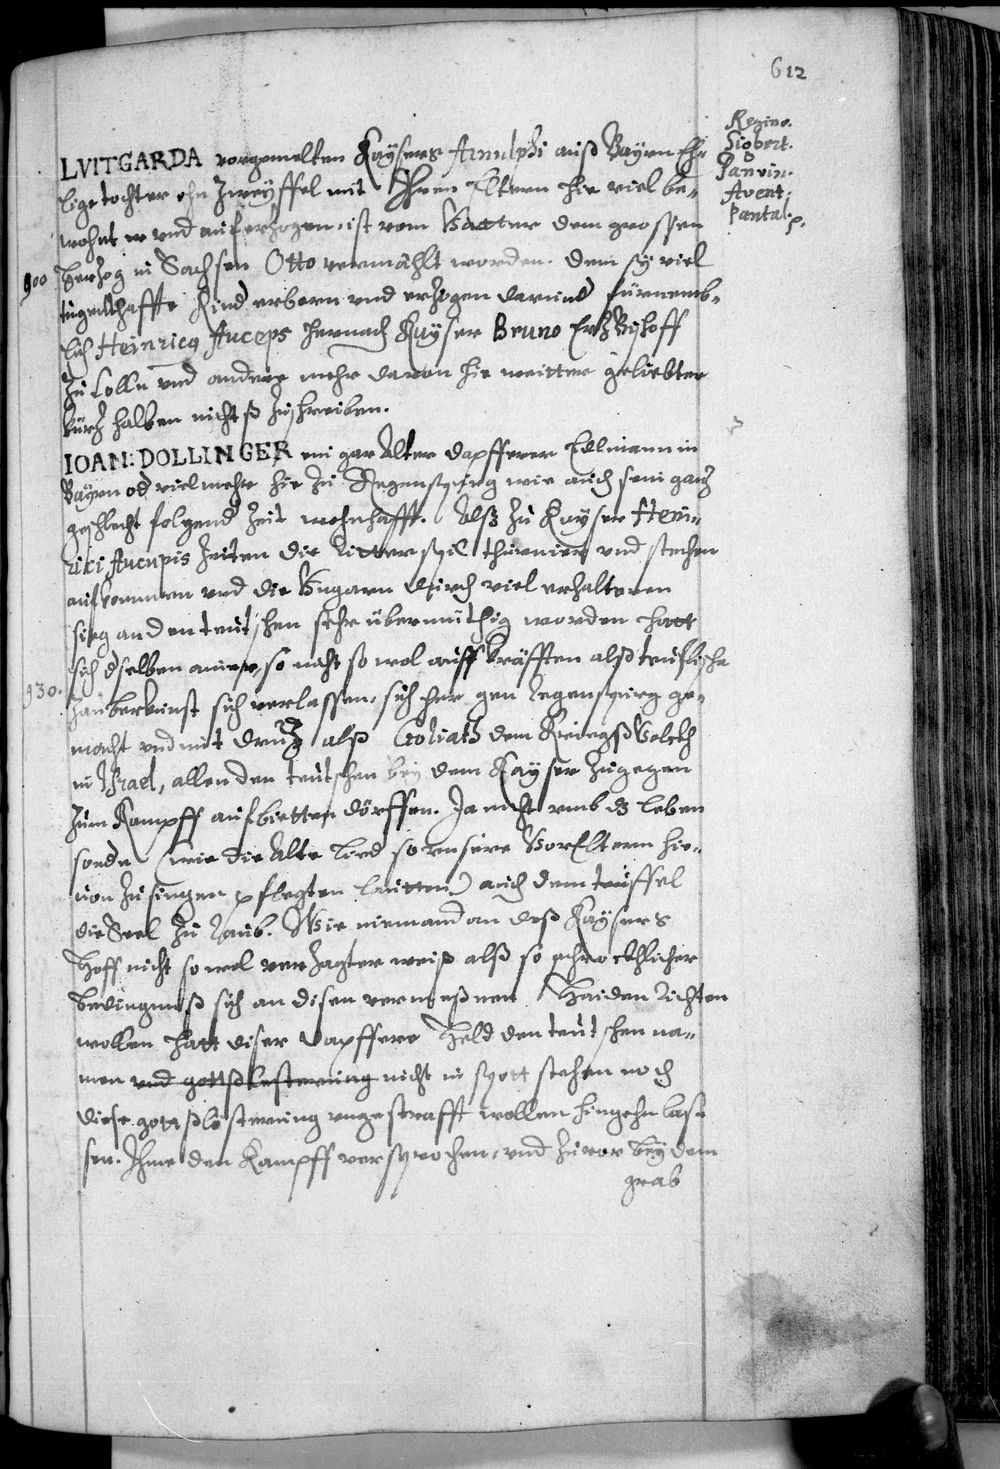 612
Regino.
Sigbert.
Panvin.
Avent.
Pantal. p.
LVITGARDA vorgemelten Kaÿsers Arnulphi auß Baÿrn Ehe
ligetochter ohn Zweÿffel mit Ihren Eltern hie viel be-
wohnt und auferzogen, ist vom Vatter dem grossen
900
Herzog in Sachsen Otto vermählt worden. dem sÿ viel
tugendhaffte Kind erborn und erzogen darund fürnemb-
lich Heinricg Auceps hernach Kaÿser Bruno ErtzBischoff
Zu Colln und andere mehr davon hie weitter geliebter
kürtz halben nichtß zuschreiben.
IOAN: DOLLINGER ein gar Alter dapfferer Edlmann in
Baÿrn od vielmehr hie zu Regenspurg wie auch sein gantz
geschlecht folgend Zeit wohnhafft. Alß zu Kaÿser Hein-
rici Aucupis Zeiten die Ritterspil thurnier und stechen
aufkommen und die Ungarn durch viel erhaltenen
sieg an den teutschen sehr übermüthig worden hatt
sich dselben ainer, so nicht so wol auff kräfften alß teuflische
930.
Zauberkunst sich verlassen, sich her gen Regenspurg ge-
macht und mit drutz alß Goliath dem KriegßVolckh
in Israel, allen den teutschen beÿ dem Kaÿser zugegen
zum Kampff aufbietten dörffen. Ja nicht umb dz leben
sondn (wie die Alte lied so unsere VorEltern hie-
von zu singen pflegten lautten) auch dem teuffel
die Seel zu Raub. Wie niemand an deß Kaÿsers
Hoff nicht so wol verzagter weiß alß so schröckhlicher
bedingnuß sich an disen vermeßnen Haiden richten
wollen hatt diser dapffere Held den teutschen na-
men und gottßlesterung nicht in spott stehen noch
diese gottßlösterung ungestrafft wollen hingehn laß-
sen. Ihme den Kampff versprochen, und zuvor beÿ dem
grab